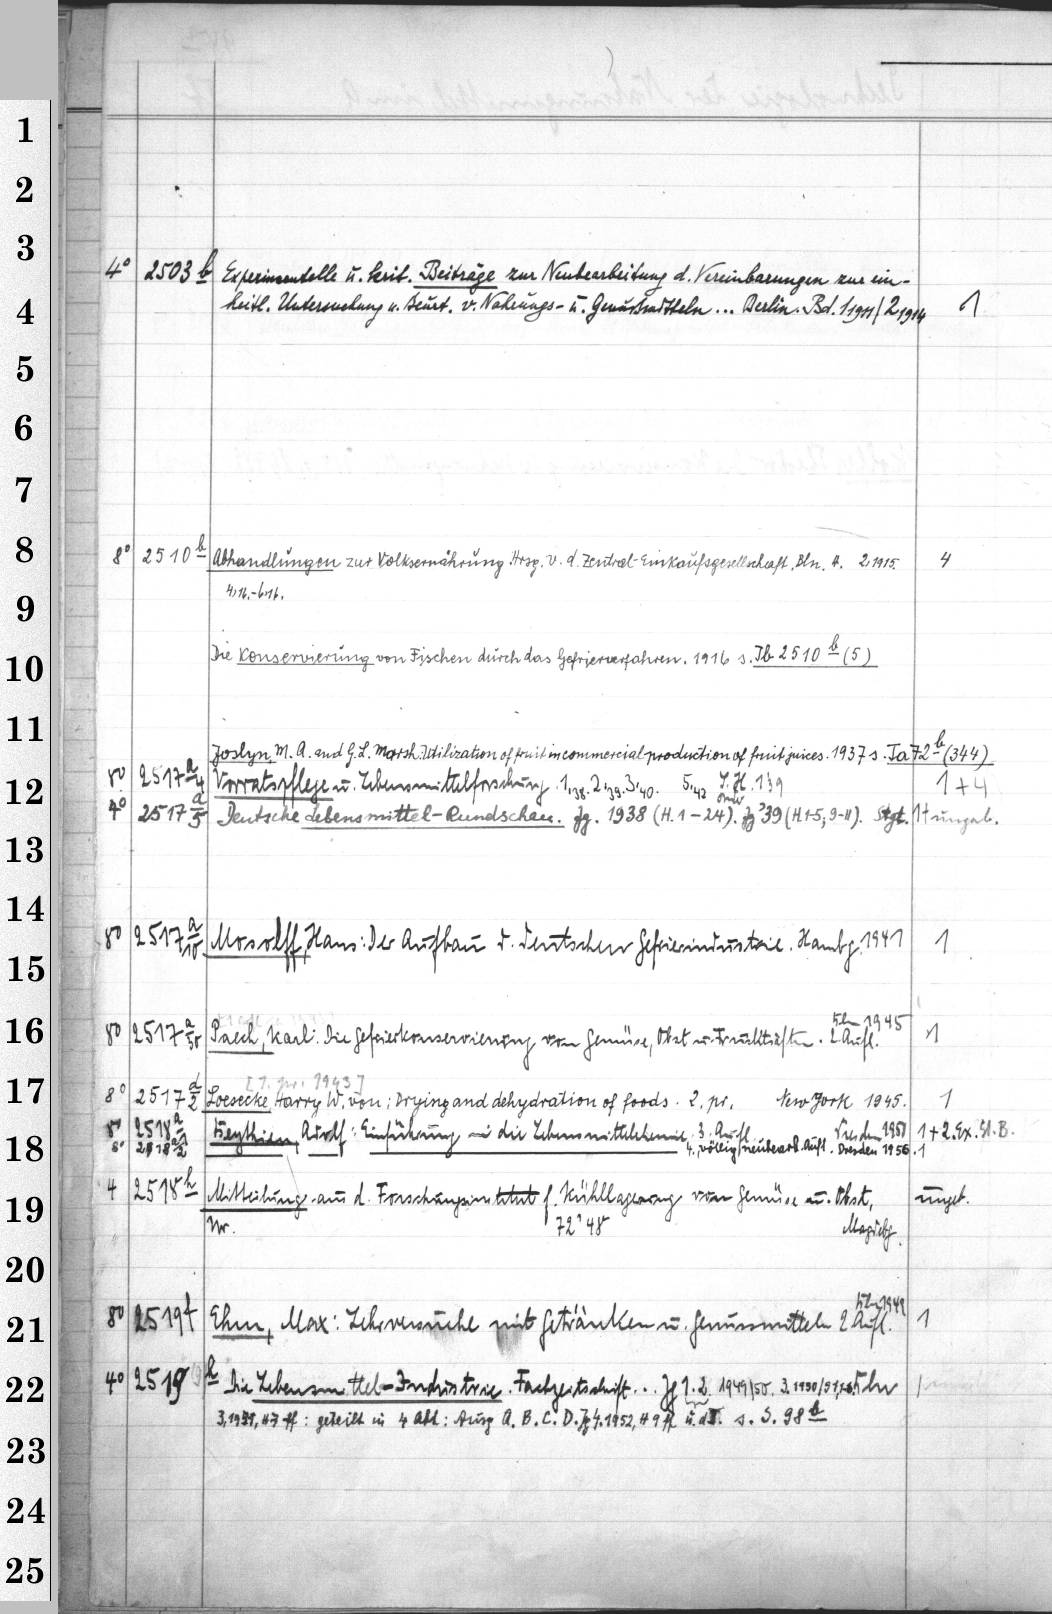 1
2
3
4° 2503 b Experimentelle u. krit. Beiträge zur Neubearbeitung d. Vereinbarungen zur ein-
4 heitl. Untersuchung u. Beurt. v. Nahrungs- u. Genußmitteln ... Berlin. Bd. 1 1911/2 1914 1
5
6
7
8 8° 2510 b Abhandlungen zur Volksernährung. Hrsg. v. d. Zentral-Einkaufsgesellschaft. Bln. H. 2,1915. 4
4,16.-6,16.
9
10 Die Konservierung von Fischen durch das Gefrierverfahren. 1916 s. Ib 2510 b (5)
11
Joslyn M. A. and G. L. Marsh. Utilization of fruit in commercial production of fruit juices. 1937 s. Ia 72 b (344)
12 8° 2517 a/4 Vorratspflege u. Lebensmittelforschung. 1,38. 2,39. 3,40. 5,42 1+4
4° 2517 a/5 Deutsche Lebensmittel-Rundschau. Jg. 1938 (H. 1-24). Jg 39 (H. 1-5; 9-11). Stgt. 1+ ungeb.
13
14
8° 2517 a/10 Mosolff, Hans: Der Aufbau d. deutschen Gefrierindustrie. Hambg. 1941 1
15
16 8° 2517 a/50 Paech, Karl: Die Gefrierkonservierung von Gemüse, Obst u. Fruchtsäften. 2. Aufl. Bln 1945 1
[1. pr. 1943]
17 8° 2517 d/2 Loesecke Harry W. von: Drying and dehydration of foods. 2. pr. New York 1945. 1
8° 2518 a Beythien, Adolf: Einführung in die Lebensmittelchemie. 3. Aufl. Dresden 1951 1+2. Ex.
18 8° 2518 a/2 4. völlig neubearb. Aufl. Dresden 1956. 1
4 2518 h Mitteilung. aus d. Forschungsinstitut f. Kühllagerung von Gemüse u. Obst, ungeb.
19 Nr. 72 '48 Magdebg.
20
21 8° 2519 f Ehm, Max: Lehrversuche mit Getränken u. Genussmitteln 2. Aufl. Bln 1949 1
22 4° 2519 h Die Lebensmittel-Industrie. Fachzeitschrift... Jg 1. 2. 1949/50. 3. 1950/51, Bln
3,1951, H 7 ff: geteilt in 4 Abt: Ausg A. B. C. D. Jg 4. 1952, H 9 ff s. S. 98 b
23
24
25